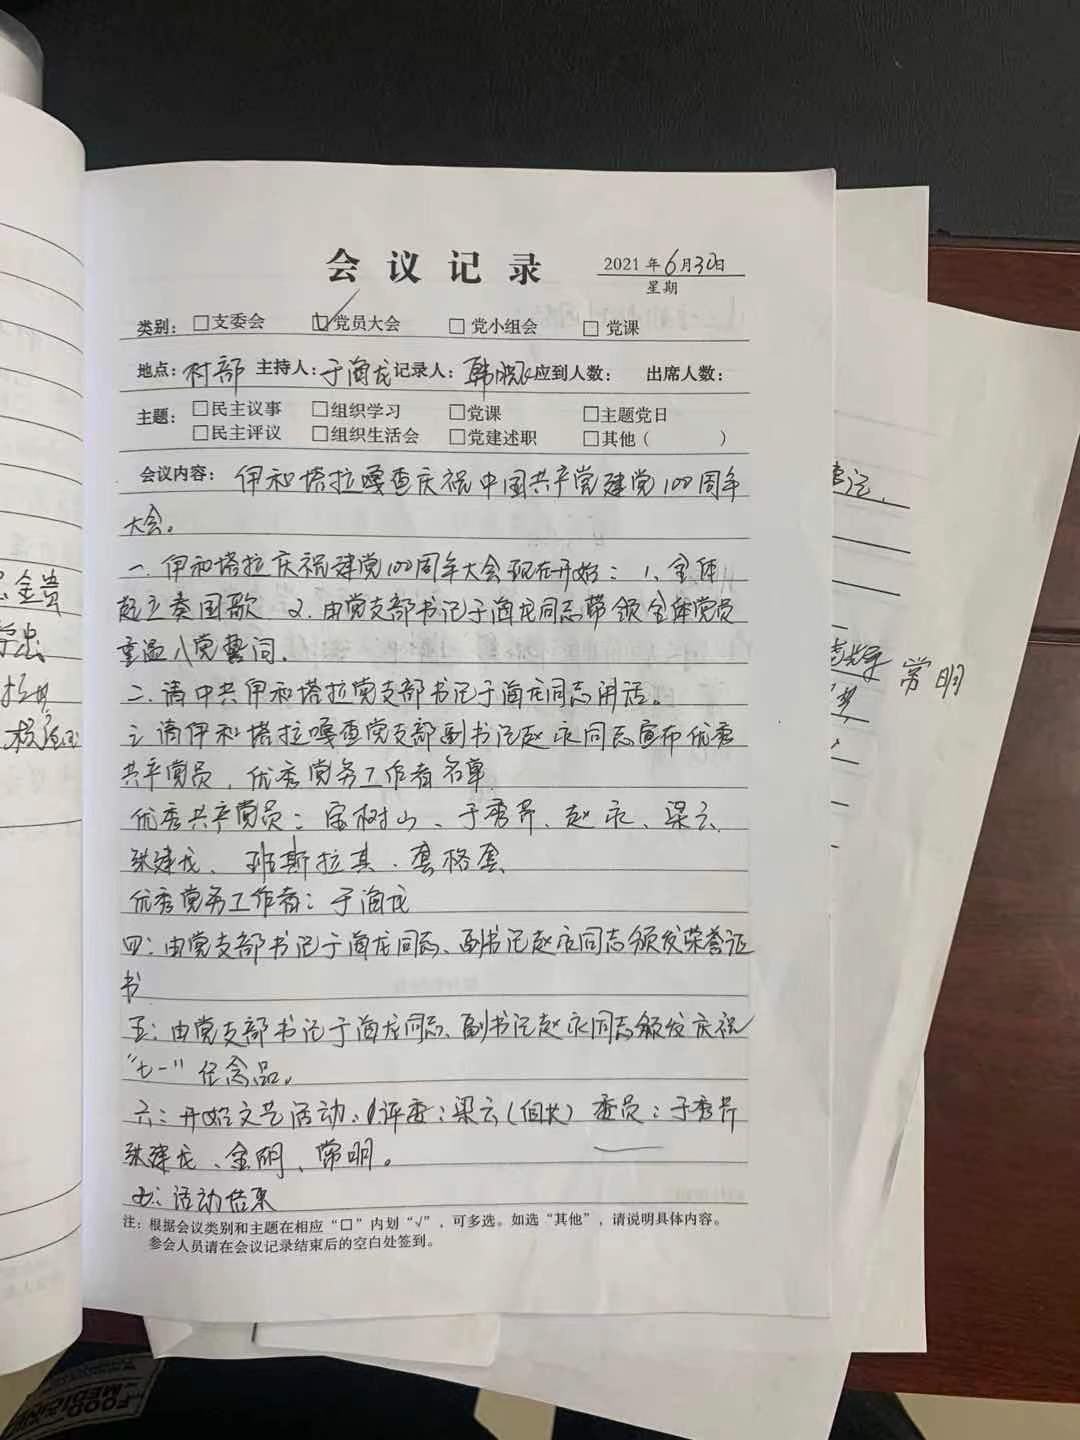 会议记录
2021年6月30日
星期
类别：□支委会 ☑党员大会 □党小组会 □党课
地点：村部 主持人：于海龙 记录人：韩 应到人数： 出席人数：
主题：□民主议事 □组织学习 □党课 □主题党日
□民主评议 □组织生活会 □党建述职 □其他（ ）
会议内容：伊和塔拉嘎查庆祝中国共产党建党100周年
大会。
一.伊和塔拉庆祝建党100周年大会现在开始：1、全体
起立奏国歌 2.由党支部书记于海龙同志带领全体党员
重温入党誓词.
二.请中共伊和塔拉党支部书记于海龙同志讲话。
三.请伊和塔拉嘎查党支部副书记赵永同志宣布优秀
共产党员，优秀党务工作者名单.
优秀共产党员：宝树山、于秀芹、赵永、梁云、
张建龙、班斯拉其.套格套
优秀党务工作者：于海龙
四：由党支部书记于海龙同志、副书记赵永同志颁发荣誉证
书
五：由党支部书记于海龙同志、副书记赵永同志颁发庆祝
"七一"纪念品。
六：开始文艺活动：评委：梁云（组长）委员：于秀芹
张建龙、金明、常明。
七：活动结束
注：根据会议类别和主题在相应“□”内划“√”，可多选。如选“其他”，请说明具体内容。
参会人员请在会议记录结束后的空白处签到。
金贵
常明
FOOD
MEDI